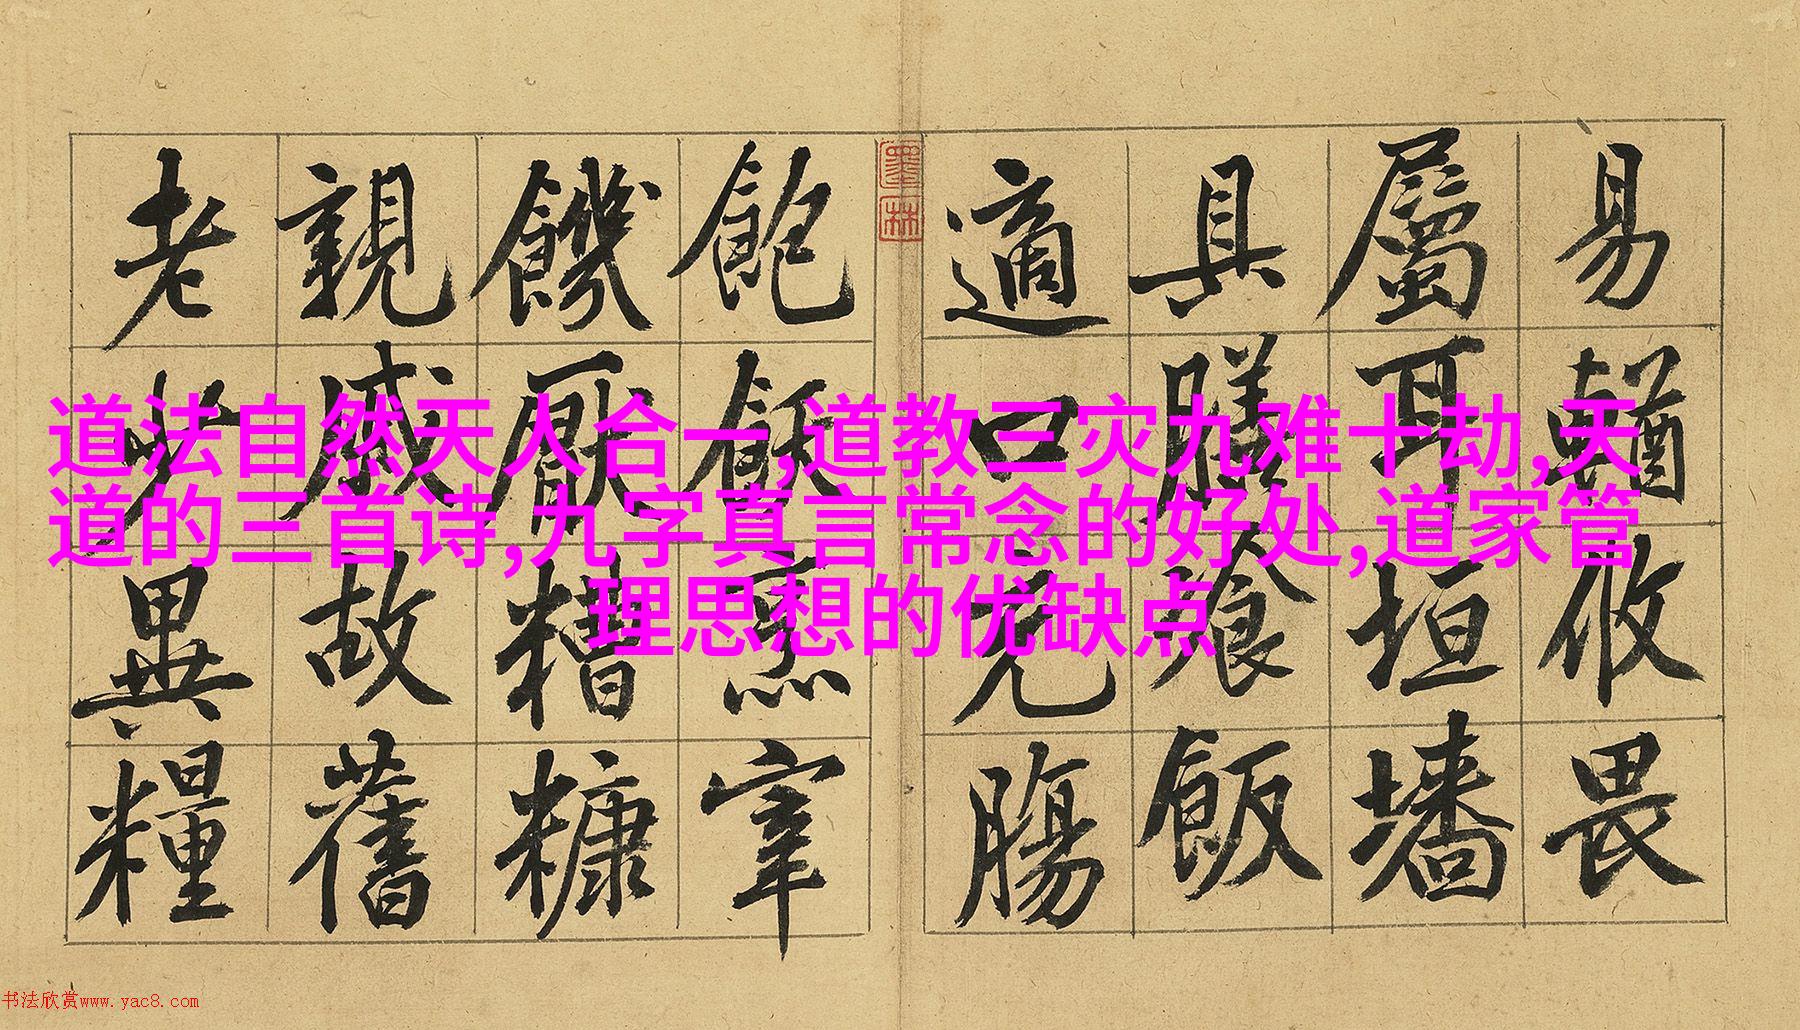 易輶攸畏
屬耳垣墻
具膳餐飯
適口充腸
墨林
飽飫烹宰
饑厭糟糠
親戚故舊
老少異糧
道法自然天人合一,道教三灾九难十劫,天
道的三首诗,九字真言常念的好处,道家管
理思想的优缺点
书法欣赏www.yac8.com